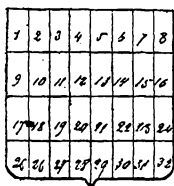 1 2 3 4 5 6 7 8
9 10 11 12 13 14 15 16
17 18 19 20 21 22 23 24
25 26 27 28 29 30 31 32